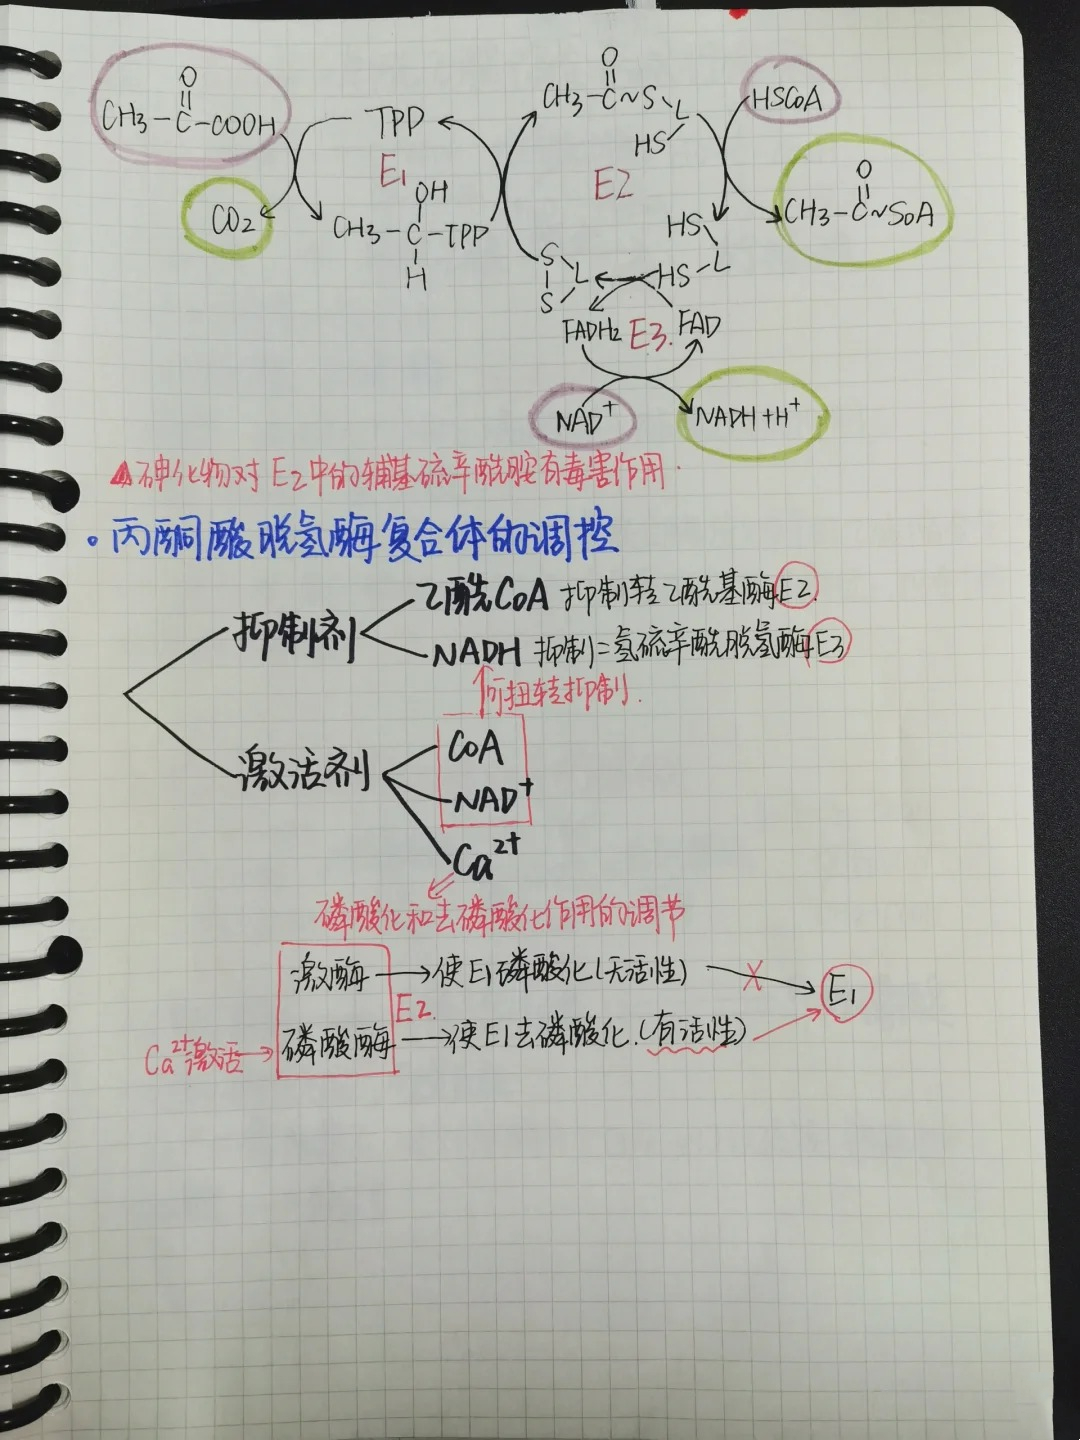 O
CH3-C-COOH
TPP
E1
CO2
OH
CH3-C-TPP
H
O
CH3-C~S
L
HS
E2
HSCoA
O
CH3-C~SCoA
HS
HS-L
S
L
S
FADH2
E3.
FAD
NAD+
NADH+H+
▲砷化物对E2中的辅基硫辛酰胺有毒害作用.
。丙酮酸脱氢酶复合体的调控
抑制剂
乙酰CoA 抑制转乙酰基酶E2.
NADH 抑制二氢硫辛酰脱氢酶E3
可扭转抑制.
激活剂
CoA
NAD+
Ca2+
磷酸化和去磷酸化作用的调节
激酶→使E1磷酸化(无活性)
X
E1
E2.
Ca2+激活→磷酸酶→使E1去磷酸化.(有活性)